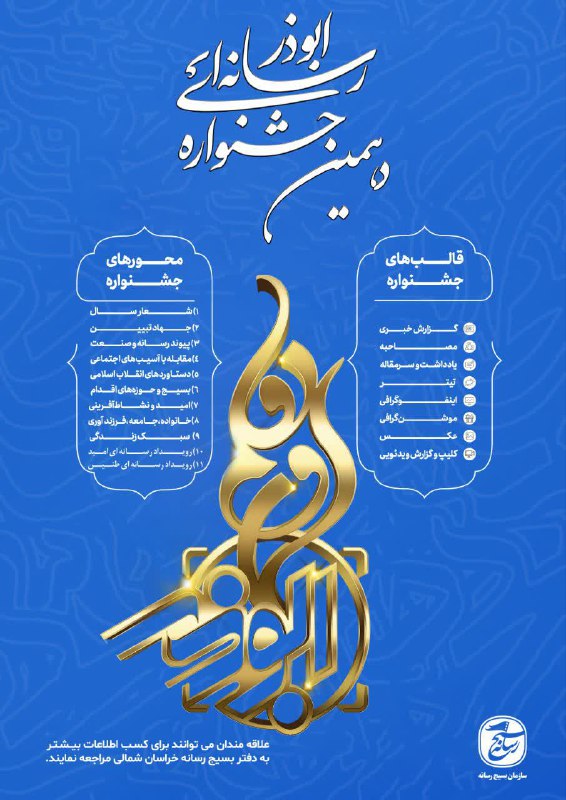 دهمین
جشنواره
رسانه‌ای
ابوذر
قالب‌های
جشنواره
گزارش خبری
مصاحبه
یادداشت و سرمقاله
تیتر
اینفوگرافی
موشن‌گرافی
عکس
کلیپ و گزارش ویدئویی
محورهای
جشنواره
۱) شعار سال
۲) جهاد تبیین
۳) پیوند رسانه و صنعت
۴) مقابله با آسیب‌های اجتماعی
۵) دستاوردهای انقلاب اسلامی
۶) بسیج و حوزه‌های اقدام
۷) امید و نشاط‌آفرینی
۸) خانواده، جامعه، فرزندآوری
۹) سبک زندگی
۱۰) رویداد رسانه ای امید
۱۱) رویداد رسانه ای طنین
علاقه مندان می توانند برای کسب اطلاعات بیشتر
به دفتر بسیج رسانه خراسان شمالی مراجعه نمایند.
سازمان بسیج رسانه